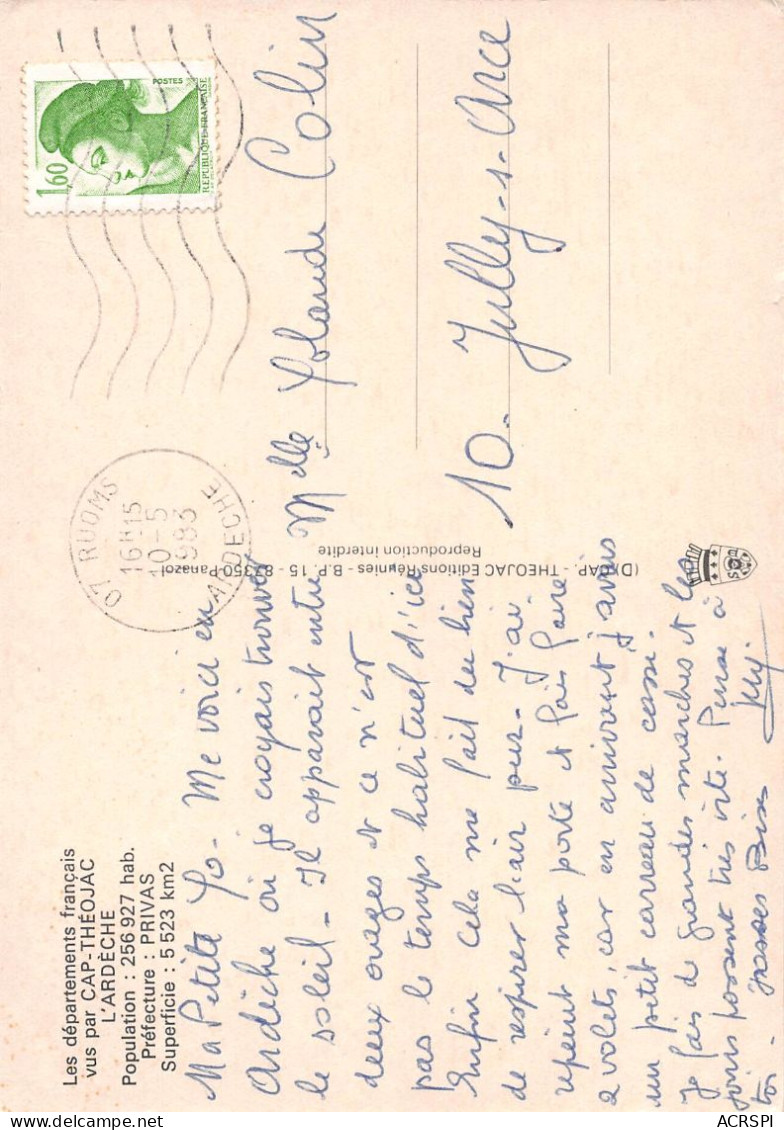 Les départements français
vus par CAP-THÉOJAC
L'ARDÈCHE
Population : 256 927 hab.
Préfecture : PRIVAS
Superficie : 5 523 km2
Ma Petite Yo - Me voici en
Ardèche où je croyais trouver
le soleil - Il apparait entre
deux orages et ce n'est
pas le temps habituel d'ici
Enfin cela me fait du bien
de respirer l'air pur - J'ai
repeint ma porte et fais faire
2 volets, car en arrivant j'avais
un petit carreau de cassé.
Je fais de grandes marches et les
jours passent très vite. Pense à
toi - grosses Bises
(D) CAP - THEOJAC Editions Réunies - B.P. 15 - 87350 Panazol
Reproduction interdite
07 RUOMS
16H15
10-5
1983
ARDECHE
POSTES
1,60
REPUBLIQUE FRANÇAISE
Melle Yolande Colin
10 - Jully-s-Sarce
ACRSPI